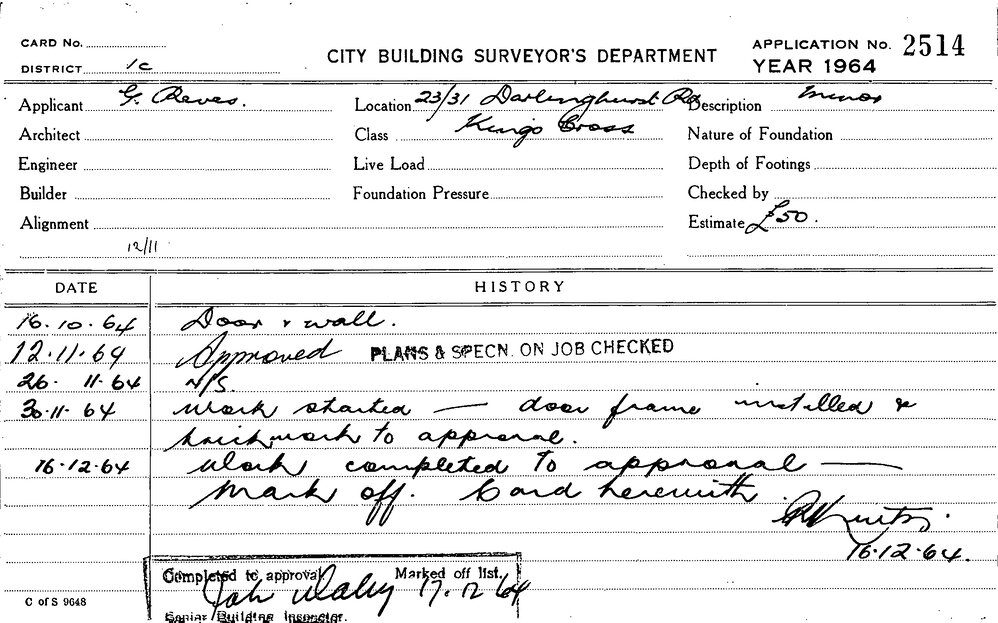 CARD No.
DISTRICT 1c
CITY BUILDING SURVEYOR'S DEPARTMENT
APPLICATION No. 2514
YEAR 1964
Applicant G. Reves.
Location 23/31 Darlinghurst Rd
Description Minor
Architect
Class Kings Cross
Nature of Foundation
Engineer
Live Load
Depth of Footings
Builder
Foundation Pressure
Checked by
Alignment
Estimate £50.
12/11
DATE
HISTORY
16.10.64 Door & wall.
12.11.64 Approved PLANS & SPECN. ON JOB CHECKED
26. 11.64 N/S.
30.11.64 Work started — door frame installed &
brickwork to approval.
16.12.64 Work completed to approval —
Mark off. Card herewith.
16.12.64.
Completed to approval Marked off list.
17.12.64
Senior Building Inspector.
C of S 9648